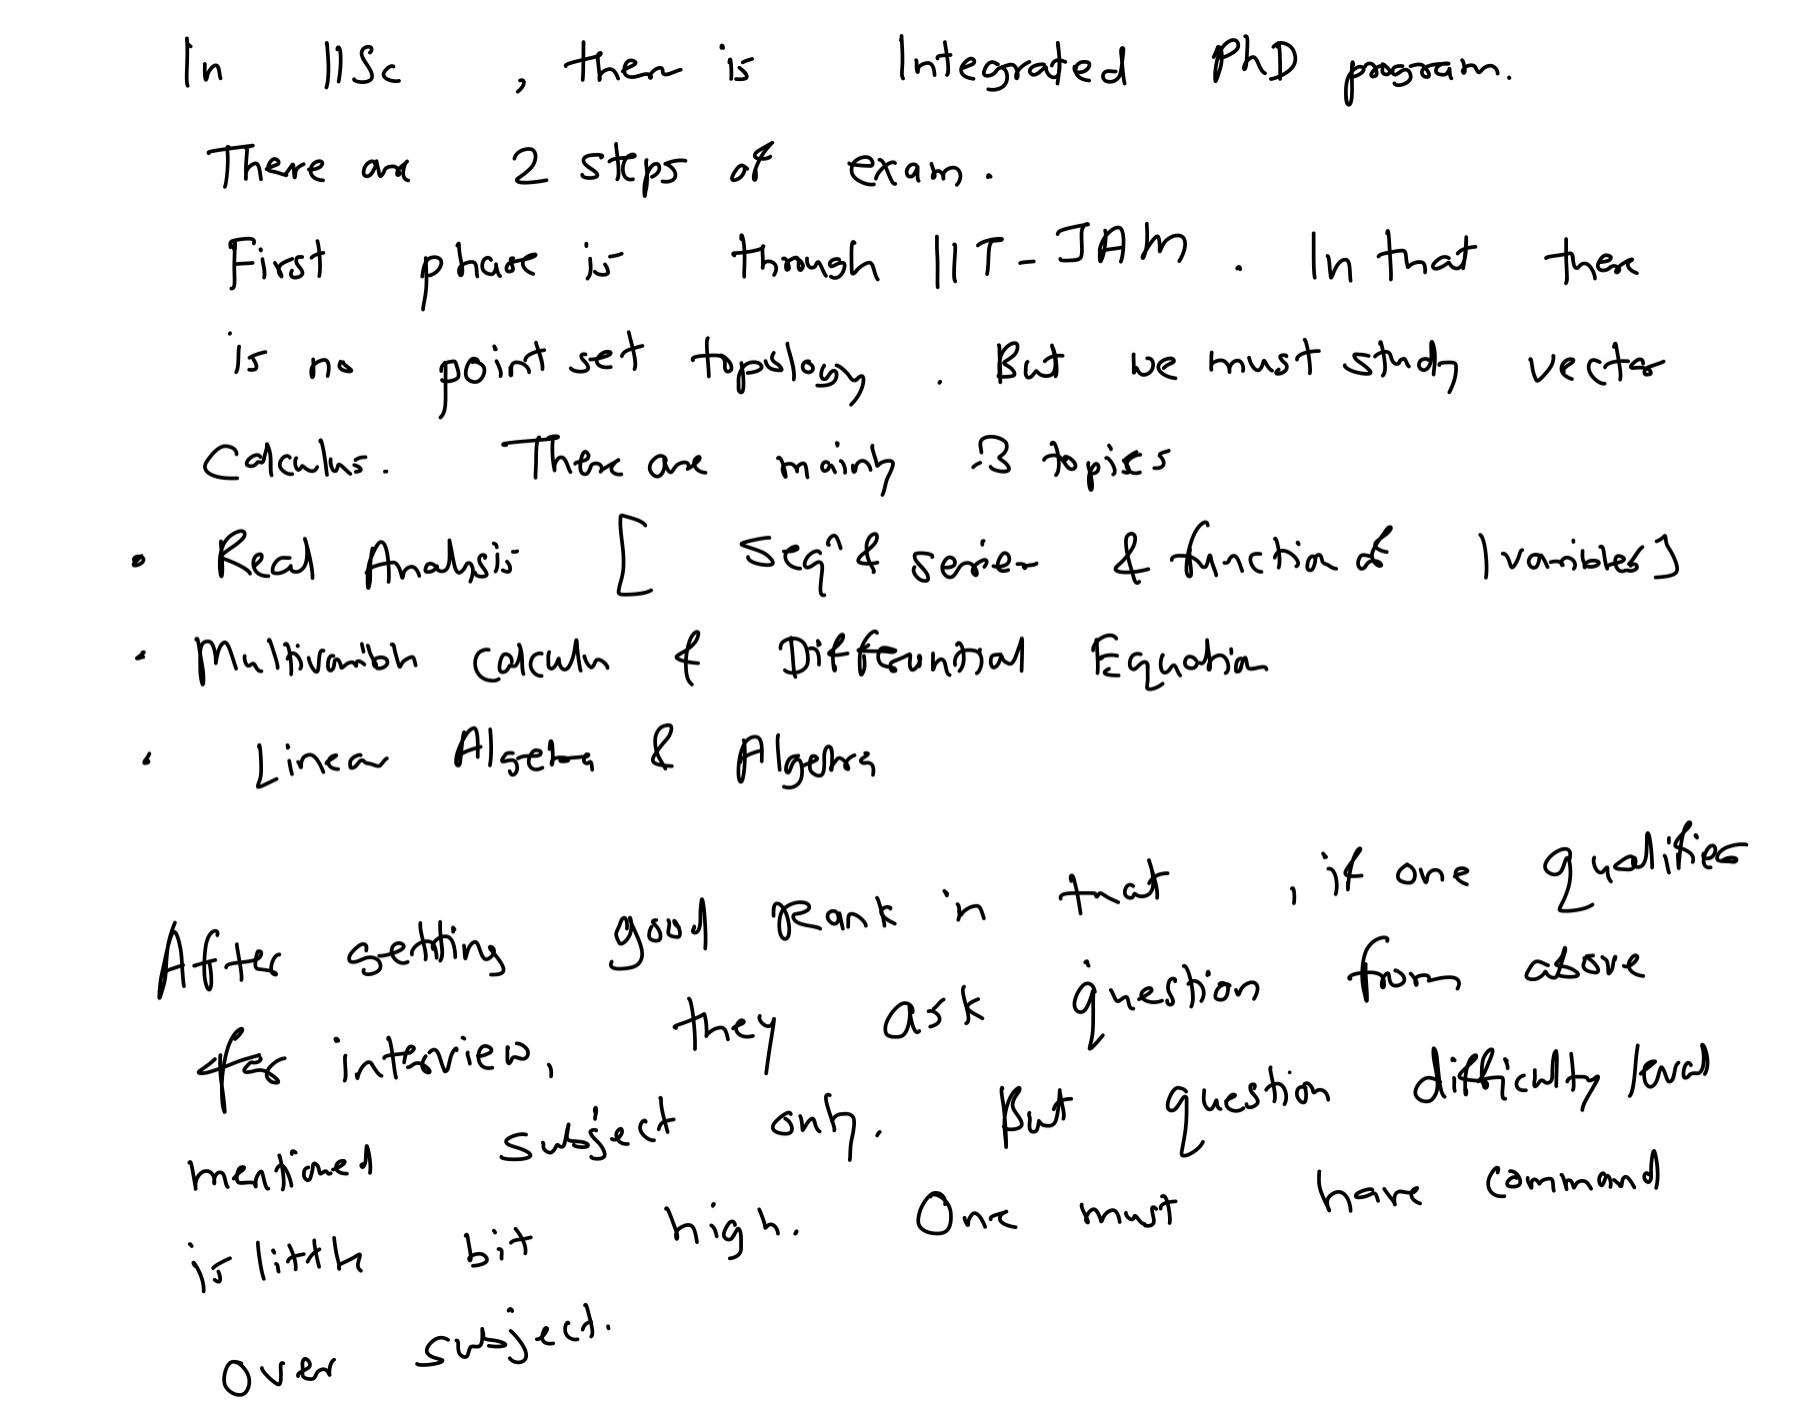 In IISc , there is Integrated PhD program.
There are 2 steps of exam.
First phase is through IIT-JAM . In that there
is no point set topology . But we must study vector
Calculus. There are mainly 3 topics
• Real Analysis [ Seqⁿ & series & function of 1 varibles]
• Multivarible calculus & Differential Equation
• Linear Algebra & Algebra
After getting good Rank in that , if one qualifies
for interview, they ask question from above
mentioned subject only. But question difficulty level
is little bit high. One must have command
over subject.